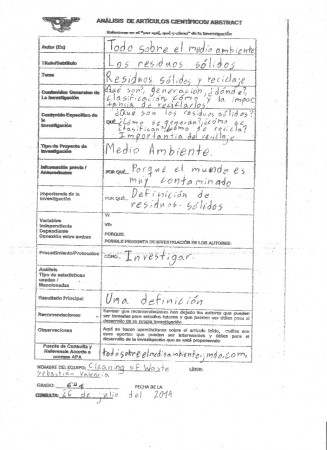 ANÁLISIS DE ARTÍCULOS CIENTÍFICOS/ ABSTRACT
Autor (Es)
Todo sobre el medio ambiente
Título/Subtítulo
Los residuos sólidos
Tema
Residuos sólidos y reciclaje
Contenidos Generales de La Investigación
Que son, generación, ¿dónde?,
clasificación cómo y la impor
tancia de reciclarlos.
Contenido Específico de la Investigación
QUÉ
¿Que son los residuos sólidos?
¿Cómo se generan? ¿cómo se
clasifican? ¿cómo se recicla?
Importancia del reciclaje
Tipo de Proyecto de Investigación
Medio Ambiente.
Información previa / Antecedentes
POR QUÉ.
Porqué el mundo es
muy contaminado
Importancia de la Investigación
POR QUÉ.
Definición de
residuos sólidos
Variables
Independiente
Dependiente
Conexión entre ambas
VI:
VD:
PORQUE:
POSIBLE PREGUNTA DE INVESTIGACIÓN DE LOS AUTORES:
Procedimiento/Protocolos
CÓMO.
Investigar
Análisis
Tipo de estadísticas usadas / Mencionadas
Resultado Principal
Una definición
Recomendaciones
Revisar que recomendaciones han dejado los autores que pueden ser tomadas para estudios futuros y que pueden ser útiles para el desarrollo de su propia investigación.
Observaciones
Aquí se hacen apreciaciones sobre el artículo leído, cuáles son esos aportes que pueden ser interesantes y útiles para el desarrollo de la investigación que se está proponiendo
Fuente de Consulta y Referencia Acorde a normas APA
todosobreelmedioambiente.jimdo.com,
NOMBRE DEL EQUIPO: Cleaning of Waste
LÍDER:
Sebastian Valencia
GRADO: 6-4
FECHA DE LA
CONSULTA: 26 de julio del 2014